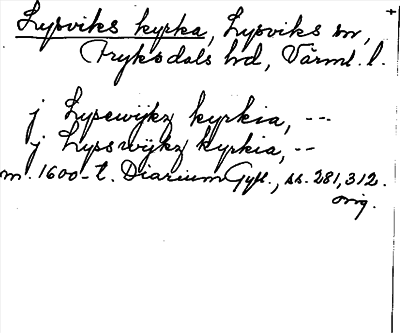 Lysviks kyrka, Lysviks sn,
Fryksdals hd, Värml. l.
j Lysewijkz kyrkia, --
j Lysswijkz kyrkia, --
m. 1600-t. Diarium Gyll., ss. 281, 312.
orig.